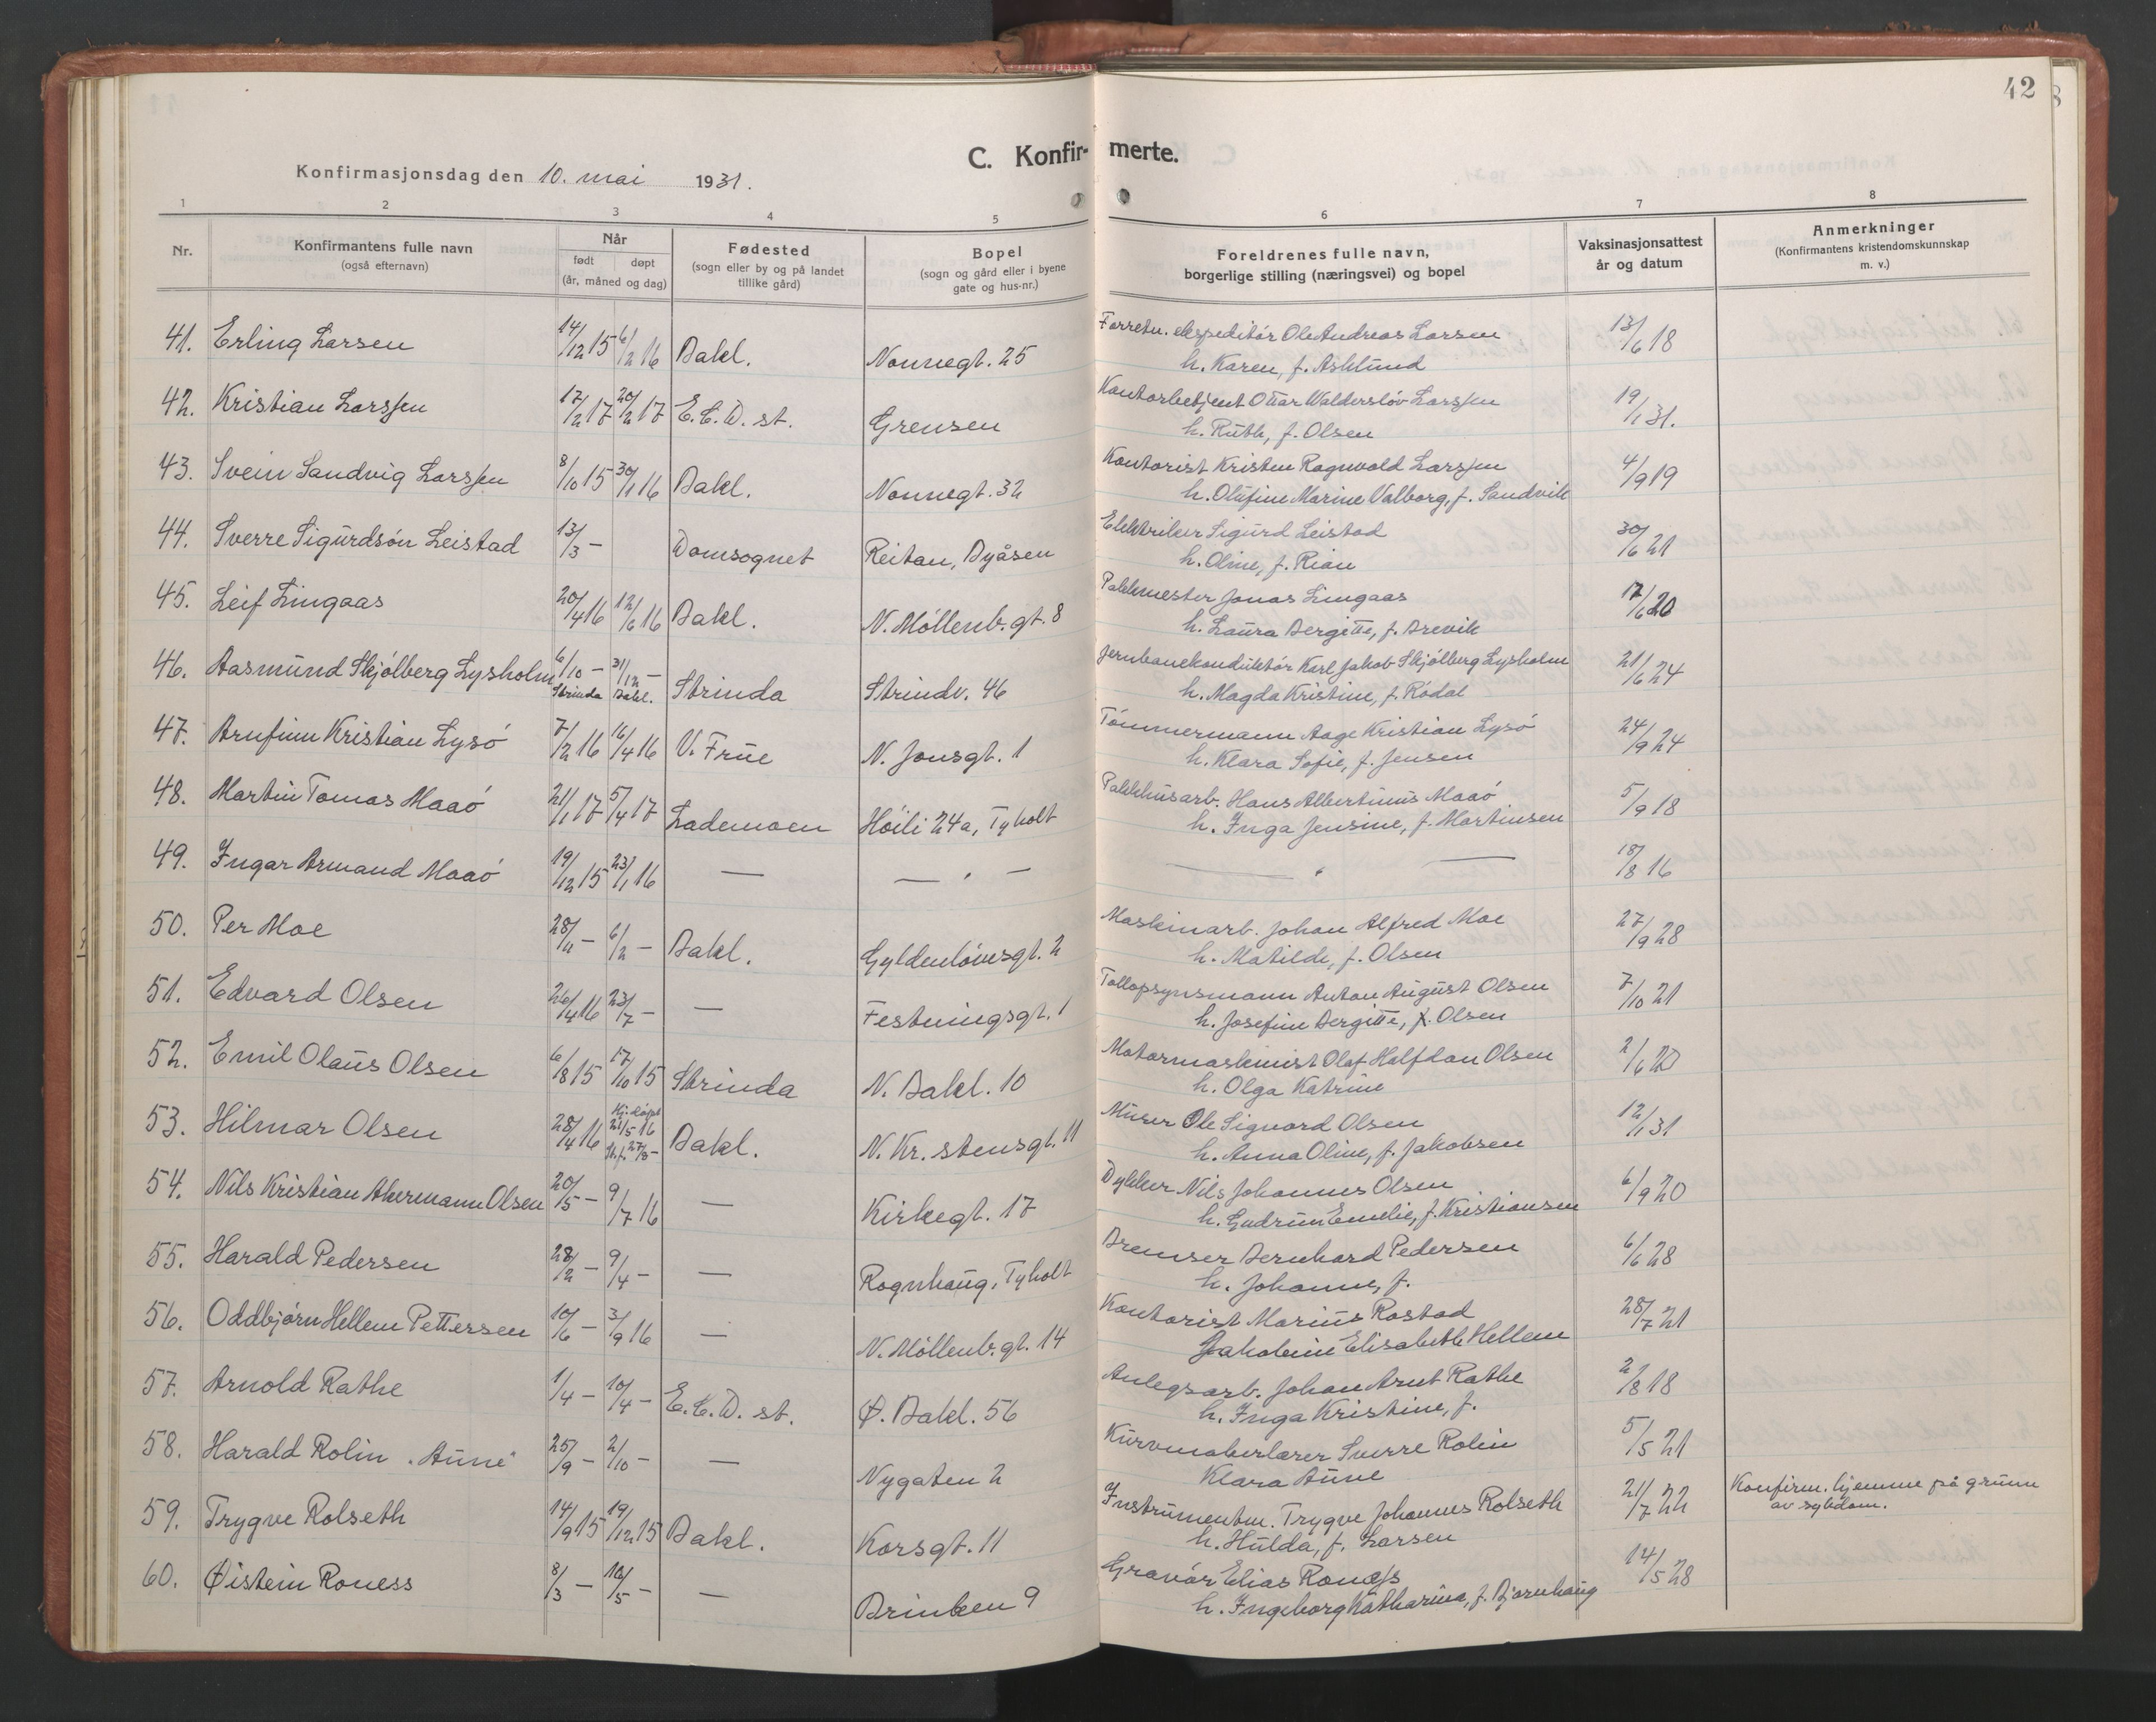 42
C. Konfir- merte.
Konfirmasjonsdag den 10. mai 1931.
1 2 3 4 5 6 7 8
Nr. Konfirmantens fulle navn (også efternavn) Når født døpt (år, måned og dag) Fødested (sogn eller by og på landet tillike gård) Bopel (sogn og gård eller i byene gate og hus-nr.) Foreldrenes fulle navn, borgerlige stilling (næringsvei) og bopel Vaksinasjonsattest år og datum Anmerkninger (Konfirmantens kristendomskunnskap m. v.)
41. Erling Larsen 14/12 15 6/2 16 Bakl. Nonnegt. 25 Forretn. ekspeditör Ole Andreas Larsen 13/6 18
h. Karen, f. Asklund
42. Kristian Larssen 17/2 17 20/2 17 E.C.D. st. Grensen Kontorbetjent Ottar Walderslöv Larssen 19/1 31.
h. Ruth, f. Olsen
43. Svein Sandvig Larssen 8/10 15 30/1 16 Bakl. Nonnegt. 32 Kontorist Kristen Ragnvald Larssen 4/9 19
h. Olufine Marine Valborg, f. Sandvik
44. Sverre Sigurdsön Leistad 13/3 — Domsognet Reitan, Byåsen Elektriker Sigurd Leistad 30/6 21
h. Oline, f. Rian
45. Leif Lingaas 20/4 16 12/6 16 Bakl. N. Möllenb. gt. 8 Pakkmester Jonas Lingaas 17/6 20
h. Laura Bergitte, f. Brevik
46. Aasmund Skjölberg Lysholm 6/10 — 31/12 — Strinda Strindv. 46 Jernbanekonduktör Karl Jakob Skjölberg Lysholm 21/6 24
Strinda Bakl. h. Magda Kristine, f. Rödal
47. Arnfinn Kristian Lysö 7/2 16 16/4 16 V. Frue N. Jonsgt. 1 Tömmermann Aage Kristian Lysö 24/9 24
h. Klara Sofie, f. Jensen
48. Martin Tomas Maaö 21/1 17 5/4 17 Lademoen Höili 24a, Tyholt Pakkhusarb. Hans Albertinus Maaö 5/9 18
h. Inga Jensine, f. Martinsen
49. Ingar Armand Maaö 19/12 15 23/1 16 — — " — — " — 18/8 16
50. Per Moe 28/11 — 6/2 — Bakl. Gyldenlövesgt. 2 Maskinarb. Johan Alfred Moe 27/9 28
h. Matilde, f. Olsen
51. Edvard Olsen 26/4 16 23/7 — — Festningsgt. 1 Tollopsynsmann Anton August Olsen 7/10 21
h. Josefine Bergitte, f. Olsen
52. Emil Olaus Olsen 6/8 15 17/10 15 Strinda N. Bakl. 10 Motormaskinist Olaf Halfdan Olsen 2/6 20
h. Olga Katrine
53. Hilmar Olsen 28/4 16 Hj. döpt 21/5 16 Bakl. N. Kr. stensgt. 11 Murer Ole Sigvard Olsen 12/1 31
27/8 — h. Anna Oline, f. Jakobsen
54. Nils Kristian Akermann Olsen 20/5 — 9/7 16 — Kirkegt. 17 Dykker Nils Johannes Olsen 6/9 20
h. Gudrun Emelie, f. Kristiansen
55. Harald Pedersen 28/2 — 9/4 — — Rognhaug, Tyholt Bremser Bernhard Pedersen 6/6 28
h. Johanne, f.
56. Oddbjörn Hellem Pettersen 10/6 — 3/9 16 — N. Möllenb. gt. 14 Kontorist Marius Rostad 28/7 21
Jakobine Elisabeth Hellem
57. Arnold Rathe 1/4 — 10/4 — E.C.D. st. Ø. Bakl. 56 Anlegsarb. Johan Arnt Rathe 2/8 18
h. Inga Kristine, f.
58. Harald Rolin "Aune" 25/9 — 2/10 — — Nygaten 2 Kurvmakerlærer Sverre Rolin 5/5 21
Klara Aune
59. Trygve Rolseth 14/9 15 19/12 15 Bakl. Korsgt. 11 Instrumentm. Trygve Johannes Rolseth 21/7 22 Konfirm. hjemme på grunn
h. Hulda, f. Larsen av sykdom.
60. Øistein Roness 8/3 — — Brinken 9 Gravör Elias Roness 14/5 28
h. Ingeborg Katharina, f. Bjørnhaug